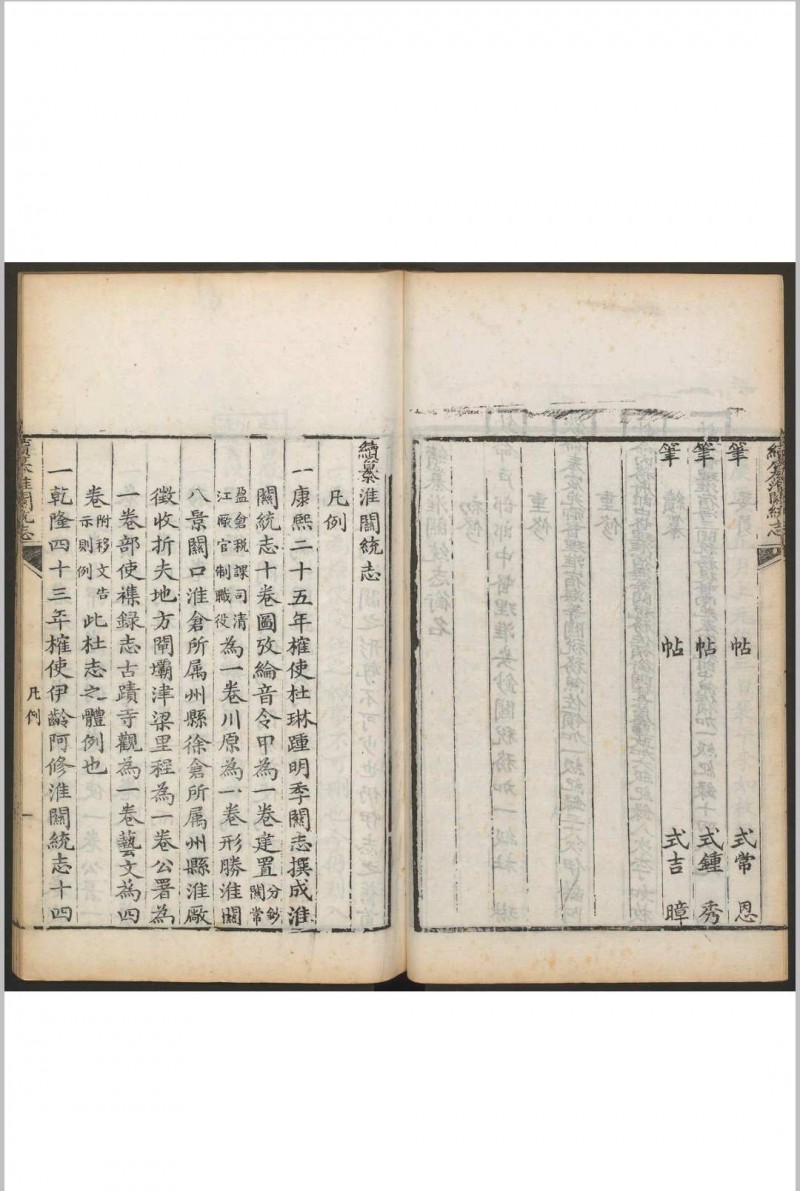 續纂淮關統志
筆 帖 式常 恩
筆 帖 式鍾 秀
筆 帖 式吉 暲
續纂淮關統志
凡例
一康熙二十五年榷使杜琳踵明季關志撰成淮
關統志十卷圖攷綸音令甲為一卷建置分鈔關常
盈倉稅課司清江厰官制職役為一卷川原為一卷形勝淮關
八景關口淮倉所屬州縣徐倉所屬州縣淮厰
徵收折夫地方閘壩津梁里程為一卷公署為
一卷部使襍録志古蹟寺觀為一卷藝文為四
卷附移文告示則例此杜志之體例也
一乾隆四十三年榷使伊齡阿修淮關統志十四
續纂淮關統志
凡例
一